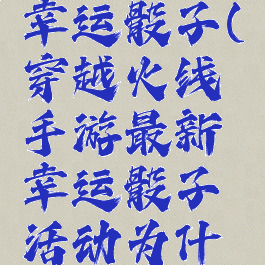 幸运骰子(
穿越火线
手游最新
幸运骰子
活动为什